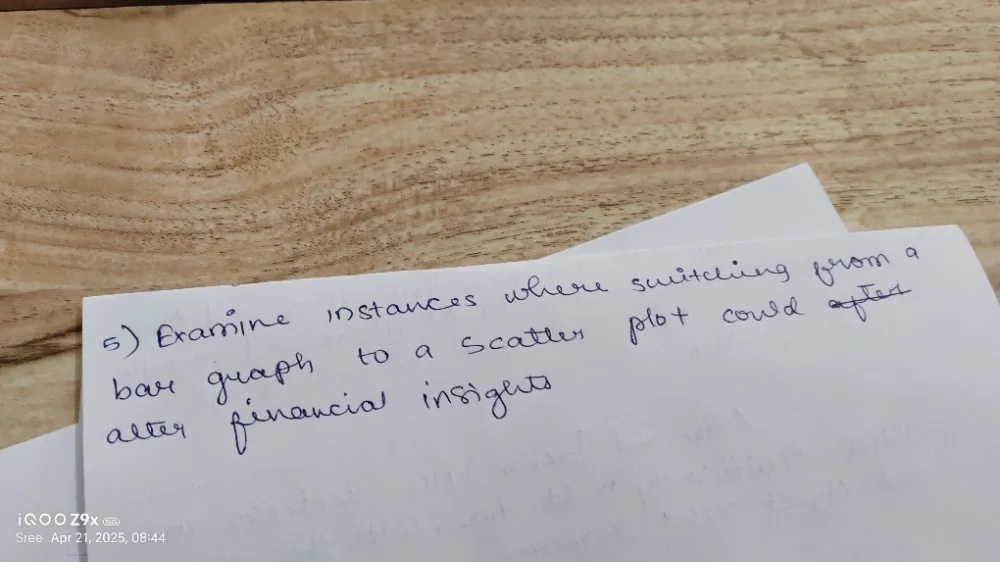 5) Examine instances where switching from a
bar graph to a scatter plot could after
alter financial insights
iQOO Z9x 5G
Sree Apr 21, 2025, 08:44